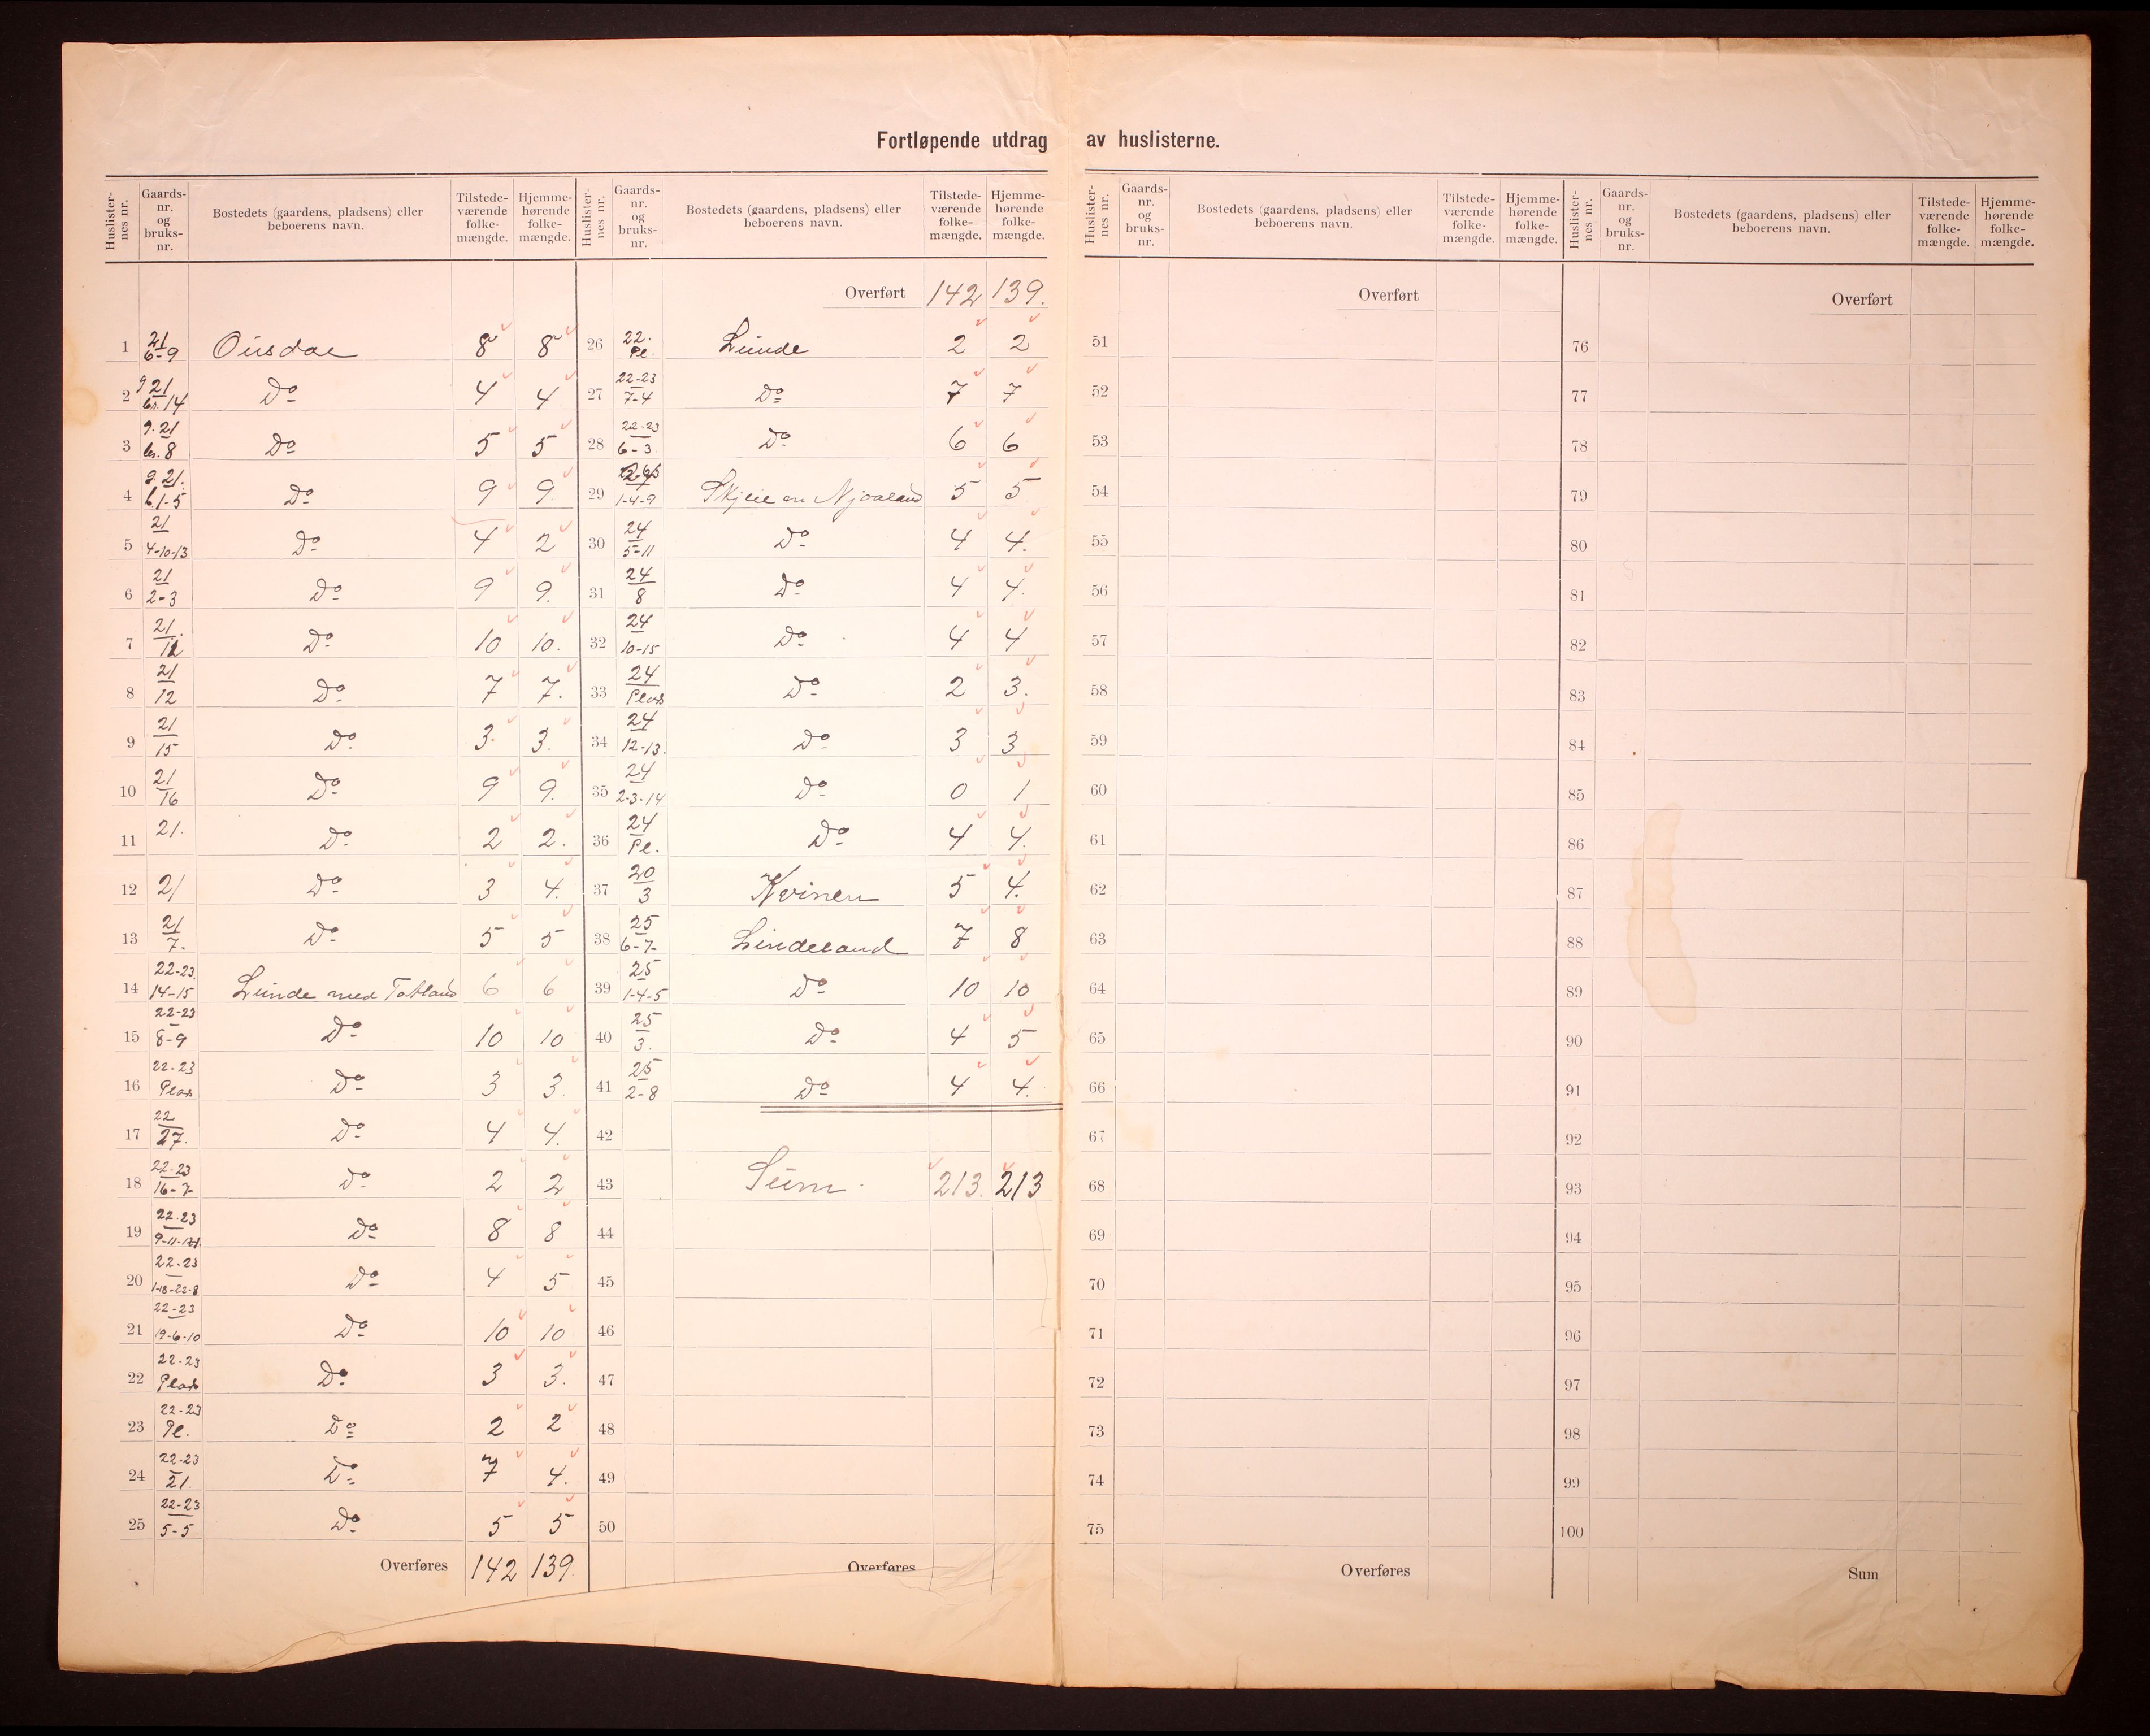 Fortløpende utdrag av huslisterne.
Huslisternes nr. | Gaards-nr. og bruks-nr. | Bostedets (gaardens, pladsens) eller beboerens navn. | Tilstede-værende folke-mængde. | Hjemme-hørende folke-mængde. | Huslisternes nr. | Gaards-nr. og bruks-nr. | Bostedets (gaardens, pladsens) eller beboerens navn. | Tilstede-værende folke-mængde. | Hjemme-hørende folke-mængde.
1 21/6-9 Ousdal 8 8
2 g 21/br. 14 Do 4 4
3 g. 21/br. 8 Do 5 5
4 g. 21./b. 1-5 Do 9 9.
5 21/4-10-13 Do 4 2
6 21/2-3 Do 9 9.
7 21./11 Do 10 10.
8 21/12 Do 7 7.
9 21/15 Do 3. 3.
10 21/16 Do 9 9.
11 21. Do 2 2.
12 21 Do 3 4.
13 21/7. Do 5 5
14 22-23./14-15 Lunde med Totland 6 6
15 22-23/8-9 Do 10 10
16 22-23/Plads Do 3 3.
17 22/27. Do 4 4.
18 22-23/16-7 Do 2 2
19 22-23/9-11- Do 8 8
20 22-23/1-18-22-8 Do 4 5
21 22-23/19-6-10 Do 10 10
22 22-23/Plads Do 3 3.
23 22-23/Pl. Do 2 2
24 22-23/21. Do 7 4.
25 22-23/5-5 Do 5 5
Overføres 142 139.
Overført 142 139.
26 22./Pl. Lunde 2 2
27 22-23/7-4 Do 7 7
28 22-23/6-3. Do 6 6
29 1-4-9 Skjeie en Njoaland 5 5
30 24/5-11 Do 4 4.
31 24/8 Do 4 4.
32 24/10-15 Do 4 4
33 24/Plads Do 2 3.
34 24/12-13. Do 3 3
35 24/2-3-14 Do 0 1
36 24/Pl. Do 4 4.
37 20/3 Kvinen 5 4.
38 25/6-7- Lindeland 7 8
39 25/1-4-5 Do 10 10
40 25/3. Do 4 5
41 25/2-8 Do 4 4.
42
43 Sum. 213. 213
44
45
46
47
48
49
50
Overføres
Huslisternes nr. | Gaards-nr. og bruks-nr. | Bostedets (gaardens, pladsens) eller beboerens navn. | Tilstede-værende folke-mængde. | Hjemme-hørende folke-mængde. | Huslisternes nr. | Gaards-nr. og bruks-nr. | Bostedets (gaardens, pladsens) eller beboerens navn. | Tilstede-værende folke-mængde. | Hjemme-hørende folke-mængde.
Overført
51
52
53
54
55
56
57
58
59
60
61
62
63
64
65
66
67
68
69
70
71
72
73
74
75
Overføres
Overført
76
77
78
79
80
81
82
83
84
85
86
87
88
89
90
91
92
93
94
95
96
97
98
99
100
Sum